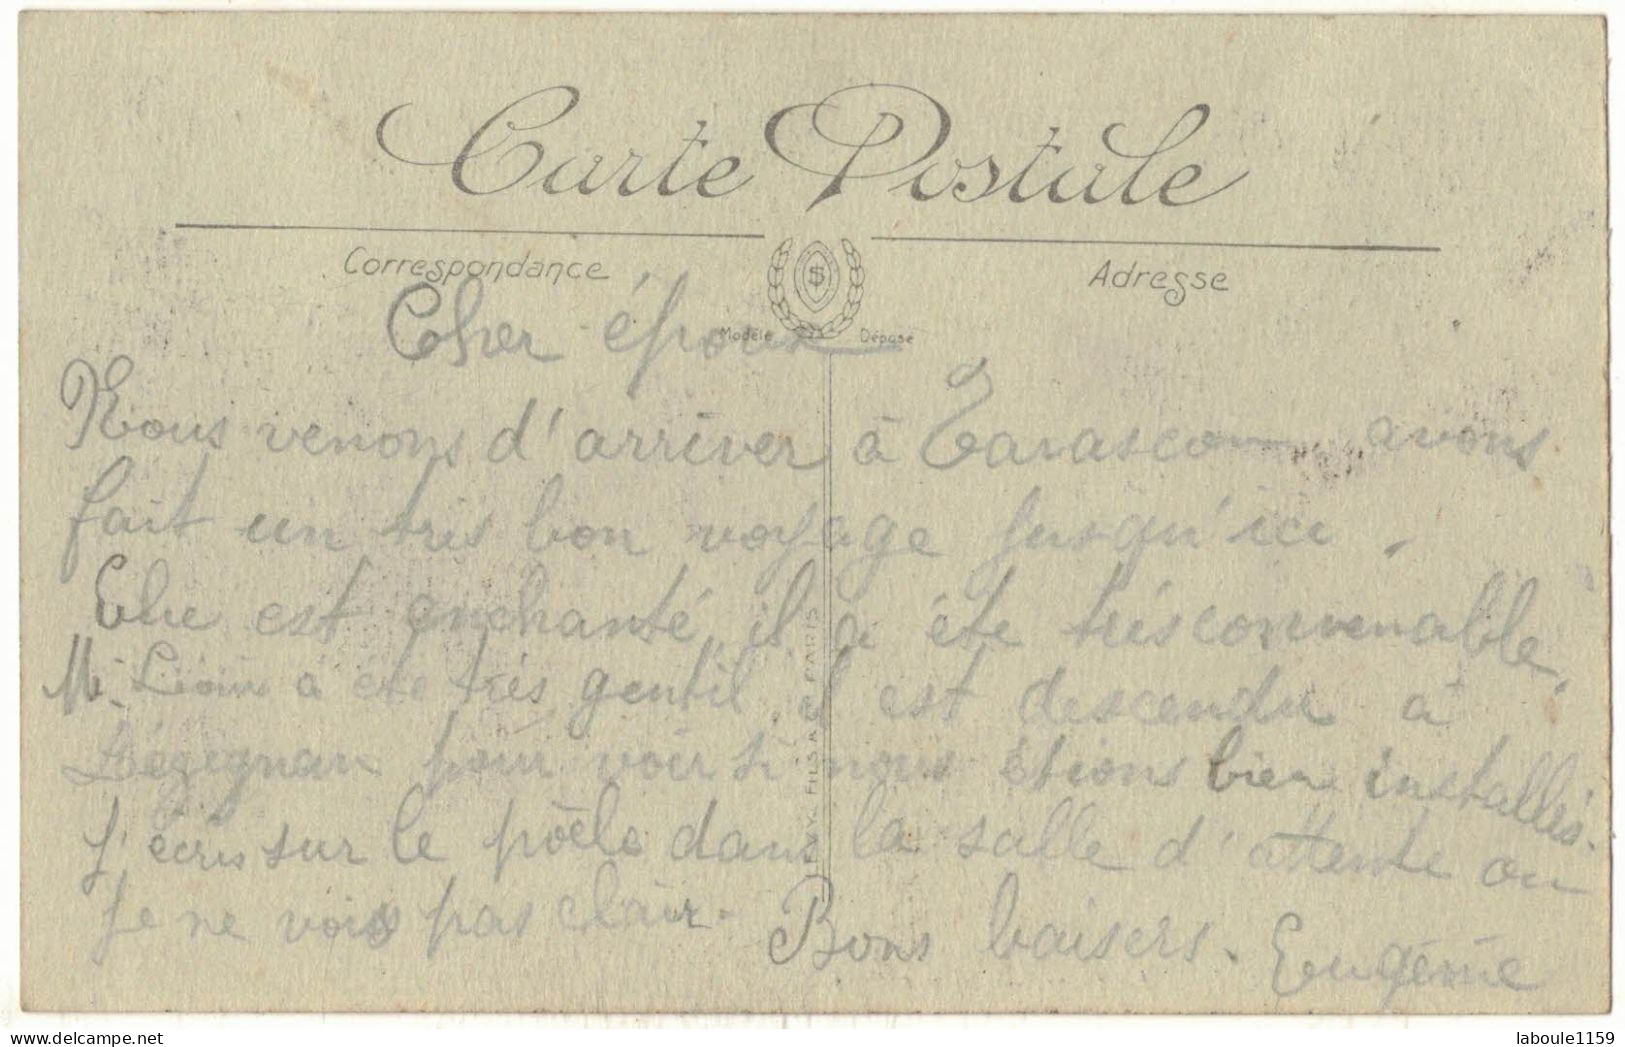 Carte Postale
Correspondance
Adresse
Modèle Déposé
Cher époux
Nous venons d'arriver à Tarascon avons
fait un très bon voyage jusqu'ici.
Elie est enchanté, il a été très convenable.
Mr. à été très gentil, il est descendu à
Lézignan pour voir si nous étions bien installés.
J'écris sur le pôele dans la salle d'attente ou
je ne vois pas clair.
Bons baisers. Eugénie
LEVY FILS & Cie PARIS
laboule1159